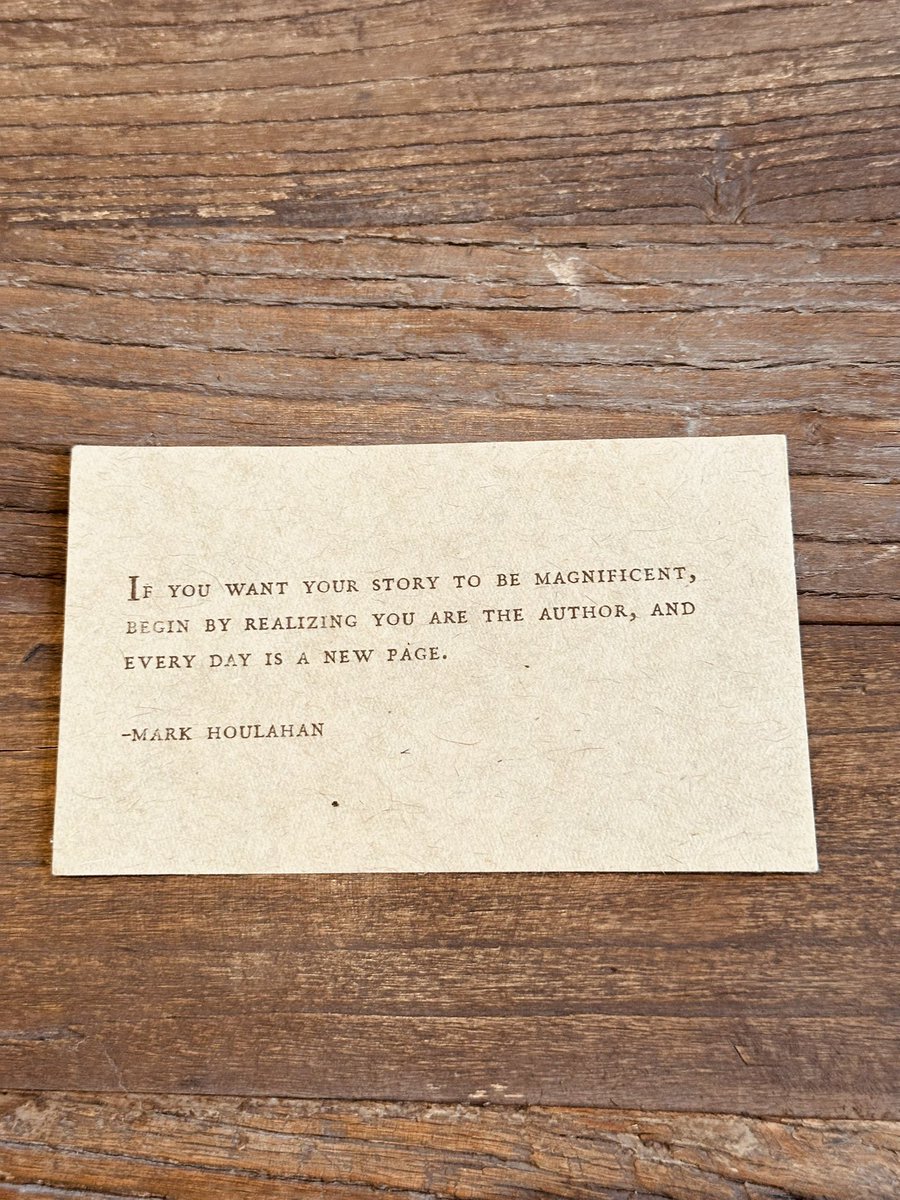 If you want your story to be magnificent,
begin by realizing you are the author, and
every day is a new page.
-Mark Houlahan